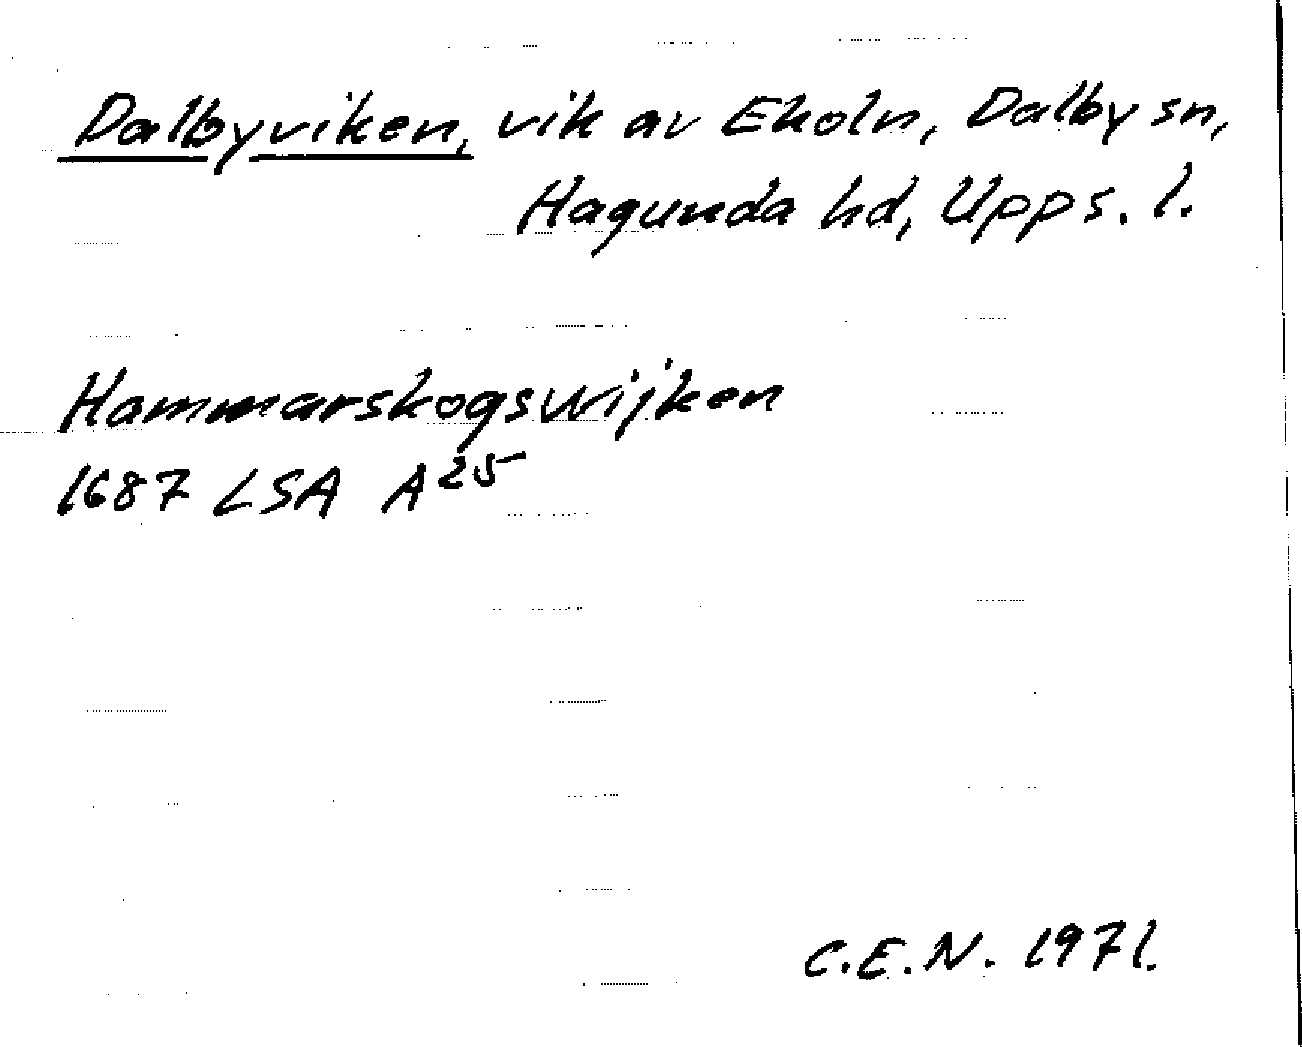 Dalbyviken, vik av Ekoln, Dalby sn,
Hagunda hd, Upps. l.
Hammarskogswijken
1687 LSA A25
C.E.N. 1971.